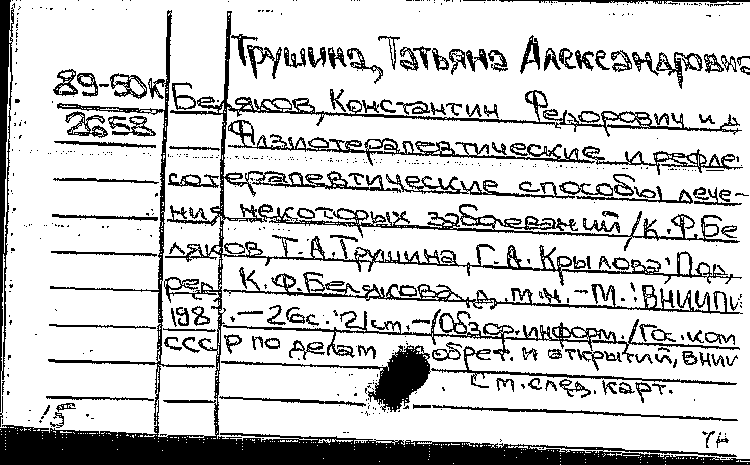 Трушина, Татьяна Александровна
89-50К
Беляков, Константин Федорович и д
2658
Физиотерапевтические и рефле
сотерапевтические способы лече-
ния некоторых заболеваний / К.Ф.Бе
ляков, Т.А.Трушина, Г.А.Крылова; Под
ред. К.Ф.Белякова, д. м.н. - М.: ВНИИПИ
198 . - 26с.; 21 см. - (Обзор.информ./Гос.ком
СССР по делам обрет. и открытий, ВНИИ
См. след. карт.
15